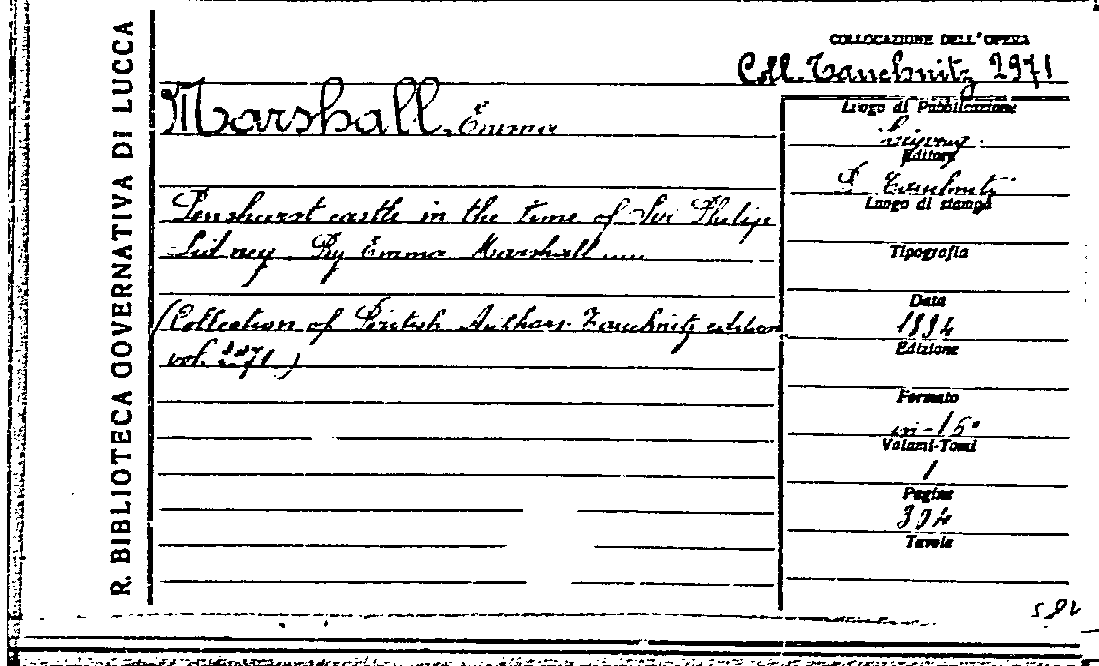 R. BIBLIOTECA GOVERNATIVA DI LUCCA
COLLOCAZIONE DELL'OPERA
Coll. Tauchnitz 2971
Marshall, Emma
Penshurst castle in the time of Sir Philip
Sidney. By Emma Marshall ....
(Collection of British Authors. Tauchnitz edition
vol. 2971.)
Luogo di Pubblicazione
Leipzig
Editore
B. Tauchnitz
Luogo di stampa
Tipografia
Data
1894
Edizione
Formato
in-16°
Volumi-Tomi
1
Pagine
Tavole
582